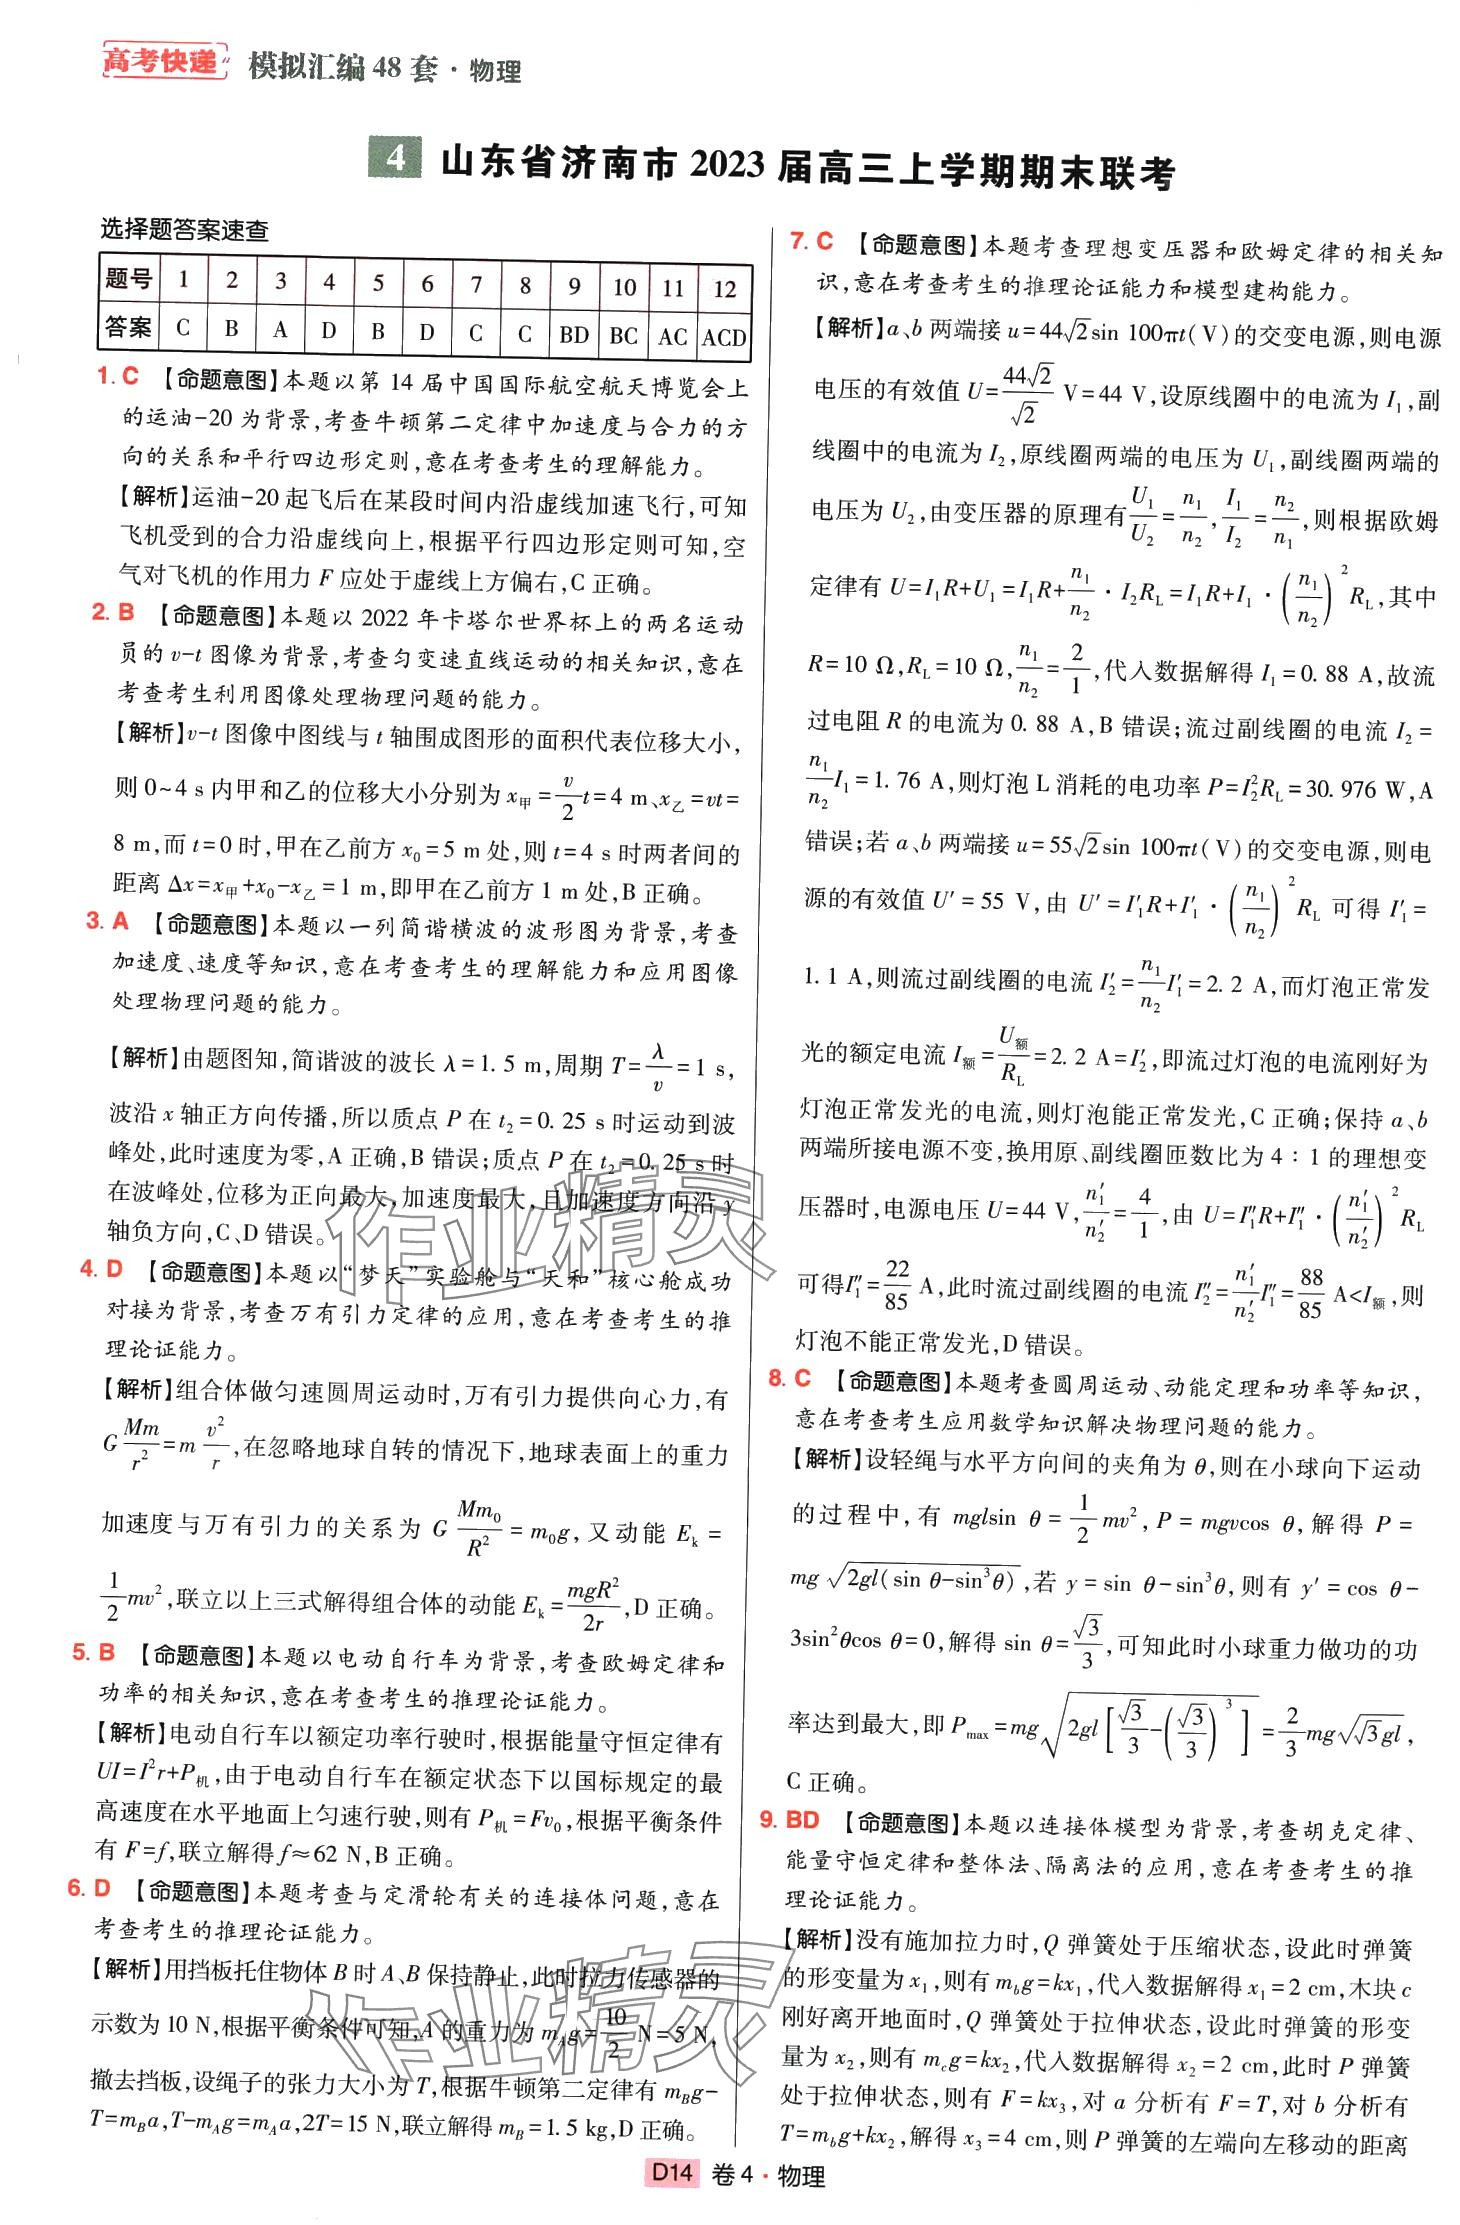 高考快递 模拟汇编48套·物理
4 山东省济南市2023届高三上学期期末联考
选择题答案速查
题号 1 2 3 4 5 6 7 8 9 10 11 12
答案 C B A D B D C C BD BC AC ACD
1. C 【命题意图】本题以第14届中国国际航空航天博览会上
的运油-20为背景,考查牛顿第二定律中加速度与合力的方
向的关系和平行四边形定则,意在考查考生的理解能力。
【解析】运油-20起飞后在某段时间内沿虚线加速飞行,可知
飞机受到的合力沿虚线向上,根据平行四边形定则可知,空
气对飞机的作用力F应处于虚线上方偏右,C正确。
2. B 【命题意图】本题以2022年卡塔尔世界杯上的两名运动
员的v-t图像为背景,考查匀变速直线运动的相关知识,意在
考查考生利用图像处理物理问题的能力。
【解析】v-t图像中图线与t轴围成图形的面积代表位移大小,
则0~4 s内甲和乙的位移大小分别为x甲=v/2 t=4 m、x乙=vt=
8 m,而t=0时,甲在乙前方x₀=5 m处,则t=4 s时两者间的
距离Δx=x甲+x₀-x乙=1 m,即甲在乙前方1 m处,B正确。
3. A 【命题意图】本题以一列简谐横波的波形图为背景,考查
加速度、速度等知识,意在考查考生的理解能力和应用图像
处理物理问题的能力。
【解析】由题图知,简谐波的波长λ=1.5 m,周期T=λ/v=1 s,
波沿x轴正方向传播,所以质点P在t₂=0.25 s时运动到波
峰处,此时速度为零,A正确,B错误;质点P在t₂=0.25 s时
在波峰处,位移为正向最大,加速度最大,且加速度方向沿y
轴负方向,C、D错误。
4. D 【命题意图】本题以“梦天”实验舱与“天和”核心舱成功
对接为背景,考查万有引力定律的应用,意在考查考生的推
理论证能力。
【解析】组合体做匀速圆周运动时,万有引力提供向心力,有
G Mm/r²=m v²/r,在忽略地球自转的情况下,地球表面上的重力
加速度与万有引力的关系为G Mm₀/R²=m₀g,又动能Eₖ=
1/2 mv²,联立以上三式解得组合体的动能Eₖ=mgR²/2r,D正确。
5. B 【命题意图】本题以电动自行车为背景,考查欧姆定律和
功率的相关知识,意在考查考生的推理论证能力。
【解析】电动自行车以额定功率行驶时,根据能量守恒定律有
UI=I²r+P机,由于电动自行车在额定状态下以国标规定的最
高速度在水平地面上匀速行驶,则有P机=Fv₀,根据平衡条件
有F=f,联立解得f≈62 N,B正确。
6. D 【命题意图】本题考查与定滑轮有关的连接体问题,意在
考查考生的推理论证能力。
【解析】用挡板托住物体B时A、B保持静止,此时拉力传感器的
示数为10 N,根据平衡条件可知,A的重力为m_A g=10/2 N=5 N,
撤去挡板,设绳子的张力大小为T,根据牛顿第二定律有m_B g-
T=m_B a,T-m_A g=m_A a,2T=15 N,联立解得m_B=1.5 kg,D正确。
7. C 【命题意图】本题考查理想变压器和欧姆定律的相关知
识,意在考查考生的推理论证能力和模型建构能力。
【解析】a、b两端接u=44√2sin 100πt(V)的交变电源,则电源
电压的有效值U=44√2/√2 V=44 V,设原线圈中的电流为I₁,副
线圈中的电流为I₂,原线圈两端的电压为U₁,副线圈两端的
电压为U₂,由变压器的原理有U₁/U₂=n₁/n₂,I₁/I₂=n₂/n₁,则根据欧姆
定律有U=I₁R+U₁=I₁R+n₁/n₂·I₂R_L=I₁R+I₁·(n₁/n₂)²R_L,其中
R=10 Ω,R_L=10 Ω,n₁/n₂=2/1,代入数据解得I₁=0.88 A,故流
过电阻R的电流为0.88 A,B错误;流过副线圈的电流I₂=
n₁/n₂ I₁=1.76 A,则灯泡L消耗的电功率P=I₂²R_L=30.976 W,A
错误;若a、b两端接u=55√2sin 100πt(V)的交变电源,则电
源的有效值U′=55 V,由U′=I₁′R+I₁′·(n₁/n₂)²R_L可得I₁′=
1.1 A,则流过副线圈的电流I₂′=n₁/n₂ I₁′=2.2 A,而灯泡正常发
光的额定电流I额=U额/R_L=2.2 A=I₂′,即流过灯泡的电流刚好为
灯泡正常发光的电流,则灯泡能正常发光,C正确;保持a、b
两端所接电源不变,换用原、副线圈匝数比为4∶1的理想变
压器时,电源电压U=44 V,n₁′/n₂′=4/1,由U=I₁″R+I₁″·(n₁′/n₂′)²R_L
可得I₁″=22/85 A,此时流过副线圈的电流I₂″=n₁′/n₂′ I₁″=88/85 A<I额,则
灯泡不能正常发光,D错误。
8. C 【命题意图】本题考查圆周运动、动能定理和功率等知识,
意在考查考生应用数学知识解决物理问题的能力。
【解析】设轻绳与水平方向间的夹角为θ,则在小球向下运动
的过程中,有mglsin θ=1/2 mv²,P=mgvcos θ,解得P=
mg√(2gl(sin θ-sin³θ)),若y=sin θ-sin³θ,则有y′=cos θ-
3sin²θcos θ=0,解得sin θ=√3/3,可知此时小球重力做功的功
率达到最大,即P_max=mg√(2gl[√3/3-(√3/3)³])=2/3 mg√(√3gl),
C正确。
9. BD 【命题意图】本题以连接体模型为背景,考查胡克定律、
能量守恒定律和整体法、隔离法的应用,意在考查考生的推
理论证能力。
【解析】没有施加拉力时,Q弹簧处于压缩状态,设此时弹簧
的形变量为x₁,则有m_b g=kx₁,代入数据解得x₁=2 cm,木块c
刚好离开地面时,Q弹簧处于拉伸状态,设此时弹簧的形变
量为x₂,则有m_c g=kx₂,代入数据解得x₂=2 cm,此时P弹簧
处于拉伸状态,则有F=kx₃,对a分析有F=T,对b分析有
T=m_b g+kx₂,解得x₃=4 cm,则P弹簧的左端向左移动的距离
D14 卷4·物理
作业精灵
作业精灵